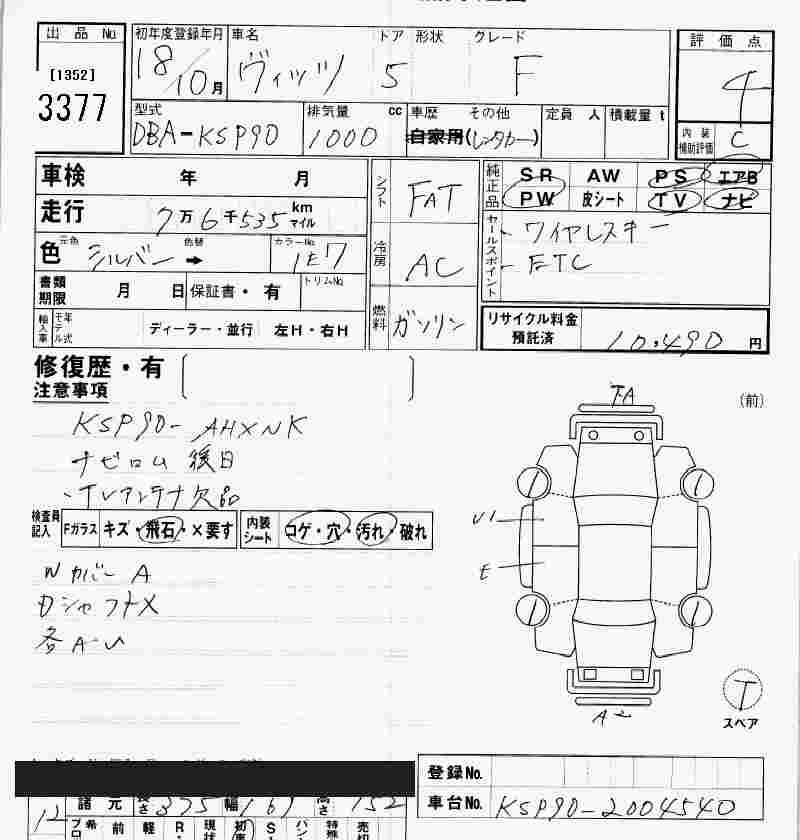 出品 No.
[1352]
3377
初年度登録年月 車名 ドア 形状 グレード
18/10月 ヴィッツ 5 F
型式 排気量 cc 車歴 その他 定員 人 積載量 t
DBA-KSP90 1000 自家用 (レンタカー)
評価点
4
内装補助評価 C
車検 年 月
走行 7万6千535 km マイル
色 元色 シルバー 色替 ➡ カラーNo. 1E7
書類期限 月 日 保証書・有 トリムNo.
輸入車 モデル年式 ディーラー・並行 左H・右H
シフト FAT
冷房 AC
燃料 ガソリン
純正品 SR AW PS エアB
PW 皮シート TV ナビ
セールスポイント
ワイヤレスキー
ETC
リサイクル料金預託済 10,490 円
修復歴・有
注意事項
KSP90-AHXNK
ナビロム 後日
・TVアンテナ欠品
検査員記入 Fガラス キズ・飛石・X要す 内装シート コゲ・穴・汚れ・破れ
Wカバー A
DシャフトX
各A-U
(前)
T・A
U1
E
A2
T
スペア
登録No.
車台No. KSP90-2004540
12 諸元 長さ 375 幅 169 高さ 152
前 軽 R・ 現状 初車 S・ パン・ 特殊 売切